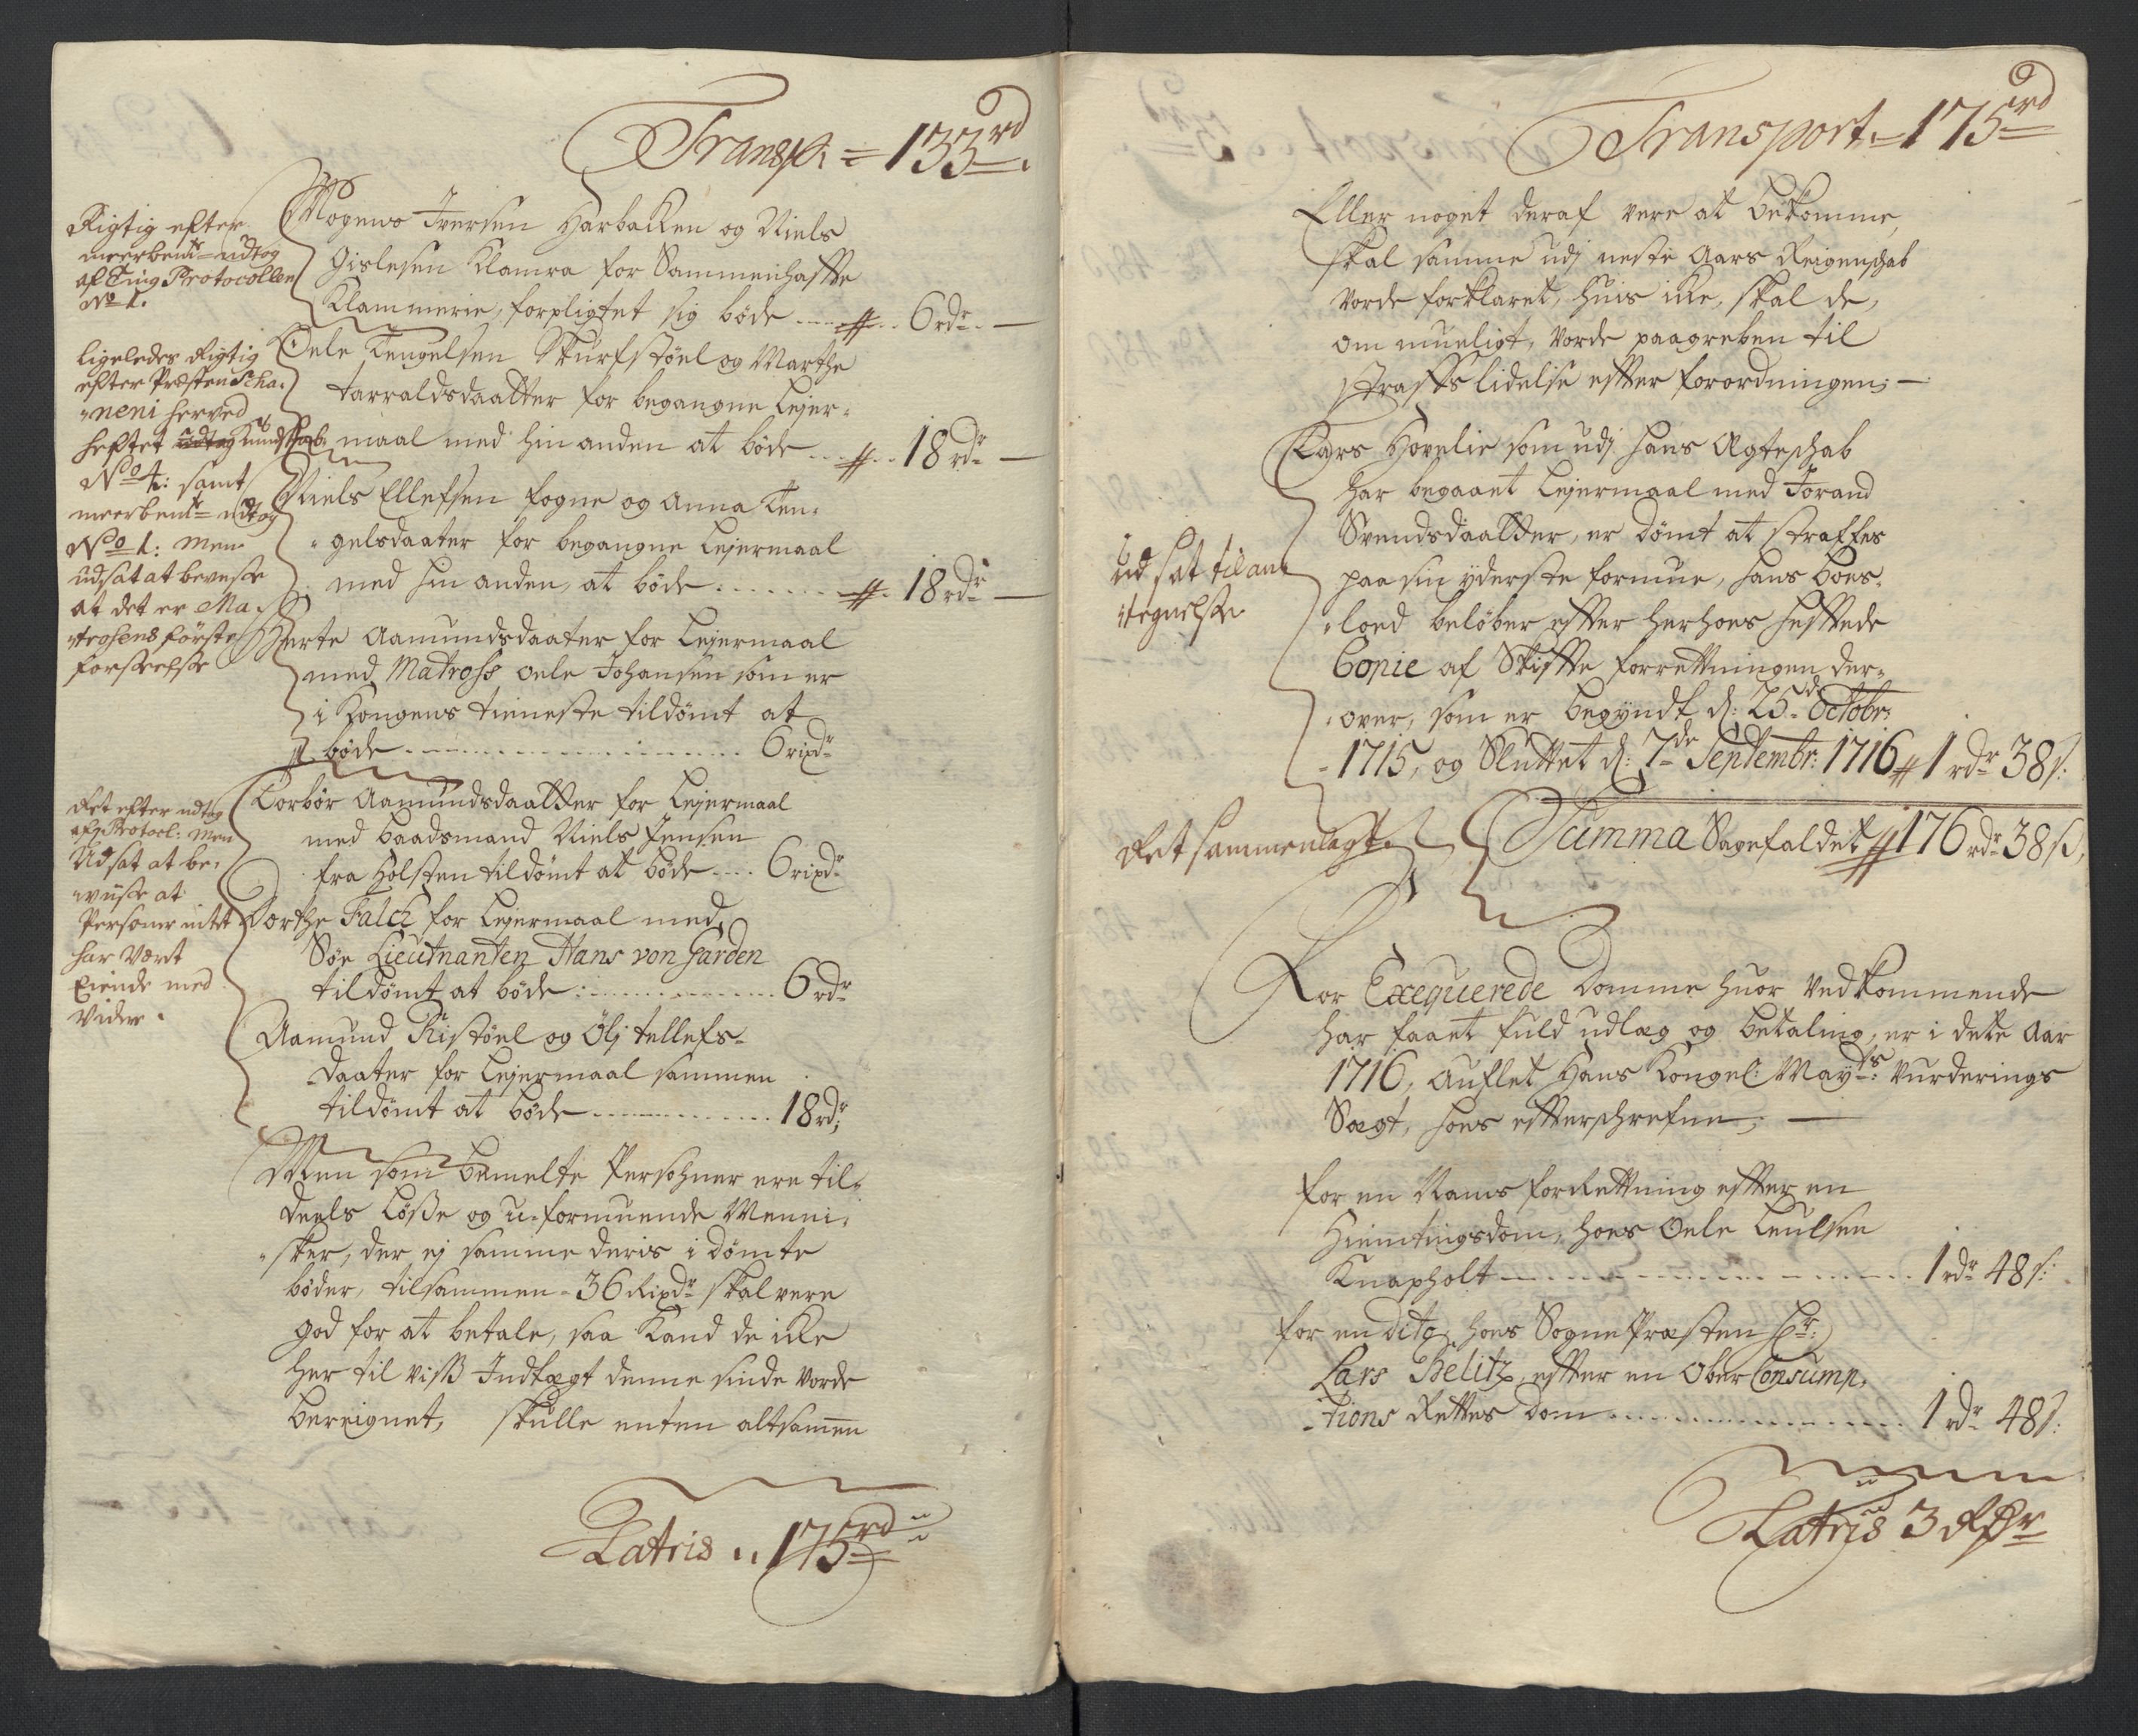 Transp: = 133 rd
Rigtig efter
meerbemte udtog
af Ting Protocollen
No 1.
Mogens Iversen Harbacken og Niels
Gislesen Klamra for Sammenhaffte
Klammerie, forpligtet sig bøde 6 rdr
ligeledes Rigtig
efter Præsten Scha-
neni herved
heftet udtog Kundskab
No 4: samt
meerbemte udtog
No 1: men
udsat at beviise
at det er Ma-
trosens første
forseelse
Oele Tengelsen Skurfstøel og Marthe
tarraldsdaatter for begangne Lejer-
maal med hin anden at bøde 18 rdr
Niels Ellefsen fogne og Anna Ten-
gelsdaater for begangne Lejermaal
med hin anden, at bøde 18 rdr
Berte Aamundsdaater for Lejermaal
med Matross Oele Johansen som er
i Kongens tieneste tildømt at
bøde 6 rixdr
Ret efter udtog
af Protocl: Men
Udsat at be-
viise at
Persone intet
har vært
Eiende med
Videre.
Torbør Aamundsdaatter for Lejermaal
med baadsmand Niels Jensen
fra Holsten tildømt at bøde 6 rixdr
Dorthe Falck for Lejermaal med
Søe Lieutnanten Hans von Garden
tildømt at bøde 6 rdr
Aamund Ristøel og Olj tellefs-
daater for Lejermaal sammen
tildømt at bøde 18 rdr
Men som bemelte Persohner ere til-
deels Løsse og u-formuende Menni-
sker, der ej samme deris i dømte
bøder, tilsammen 36 Rixdr skal vere
god for at betale, saa Kand de icke
her til viss Indtægt denne sinde vorde
bereignet, skulle enten altsammen
Latris 175 rd
Transport = 175 rd
Eller noget deraf vere at bekomme,
skal samme udj neste Aars Reigenschab
vorde forklaret, huis icke, skal de,
om mueligt, vorde paagreben til
straffs lidelse effter forordningen;
Lars Hovelie som udj hans Ægteschab
har begaaet Lejermaal med Jorand
Svendsdaatter, er dømt at straffes
paa sin yderste formue, hans boes-
lood beløber effter herhoes hefftede
Copie af Skiffte forrettningen der-
over, som er begyndt d: 25de Octobr:
1715, og Sluttet d: 7de Septembr: 1716 1 rdr 38 s:
Ud sat til an-
tegnelse
Ret sammenlagt.
Summa Sagefaldet 176 rdr 38 s.
For Exequerede Domme huor vedkommende
har faaet fuld udlæg og betaling, er i dette Aar
1716, Auflet Hans Kongel: Mayts: Vurderings
Sægt, hoes effterschrefne;
for en Nams forRettning effter en
Hiemtingsdom, hoes Oele Leulsen
Knapholt 1 rdr 48 s:
for en dito, hoes Sogne Præsten Hr:
Lars Belitz, effter en Ober Consump-
tions Rettes dom 1 rdr 48 s:
Latris 3 Rdr